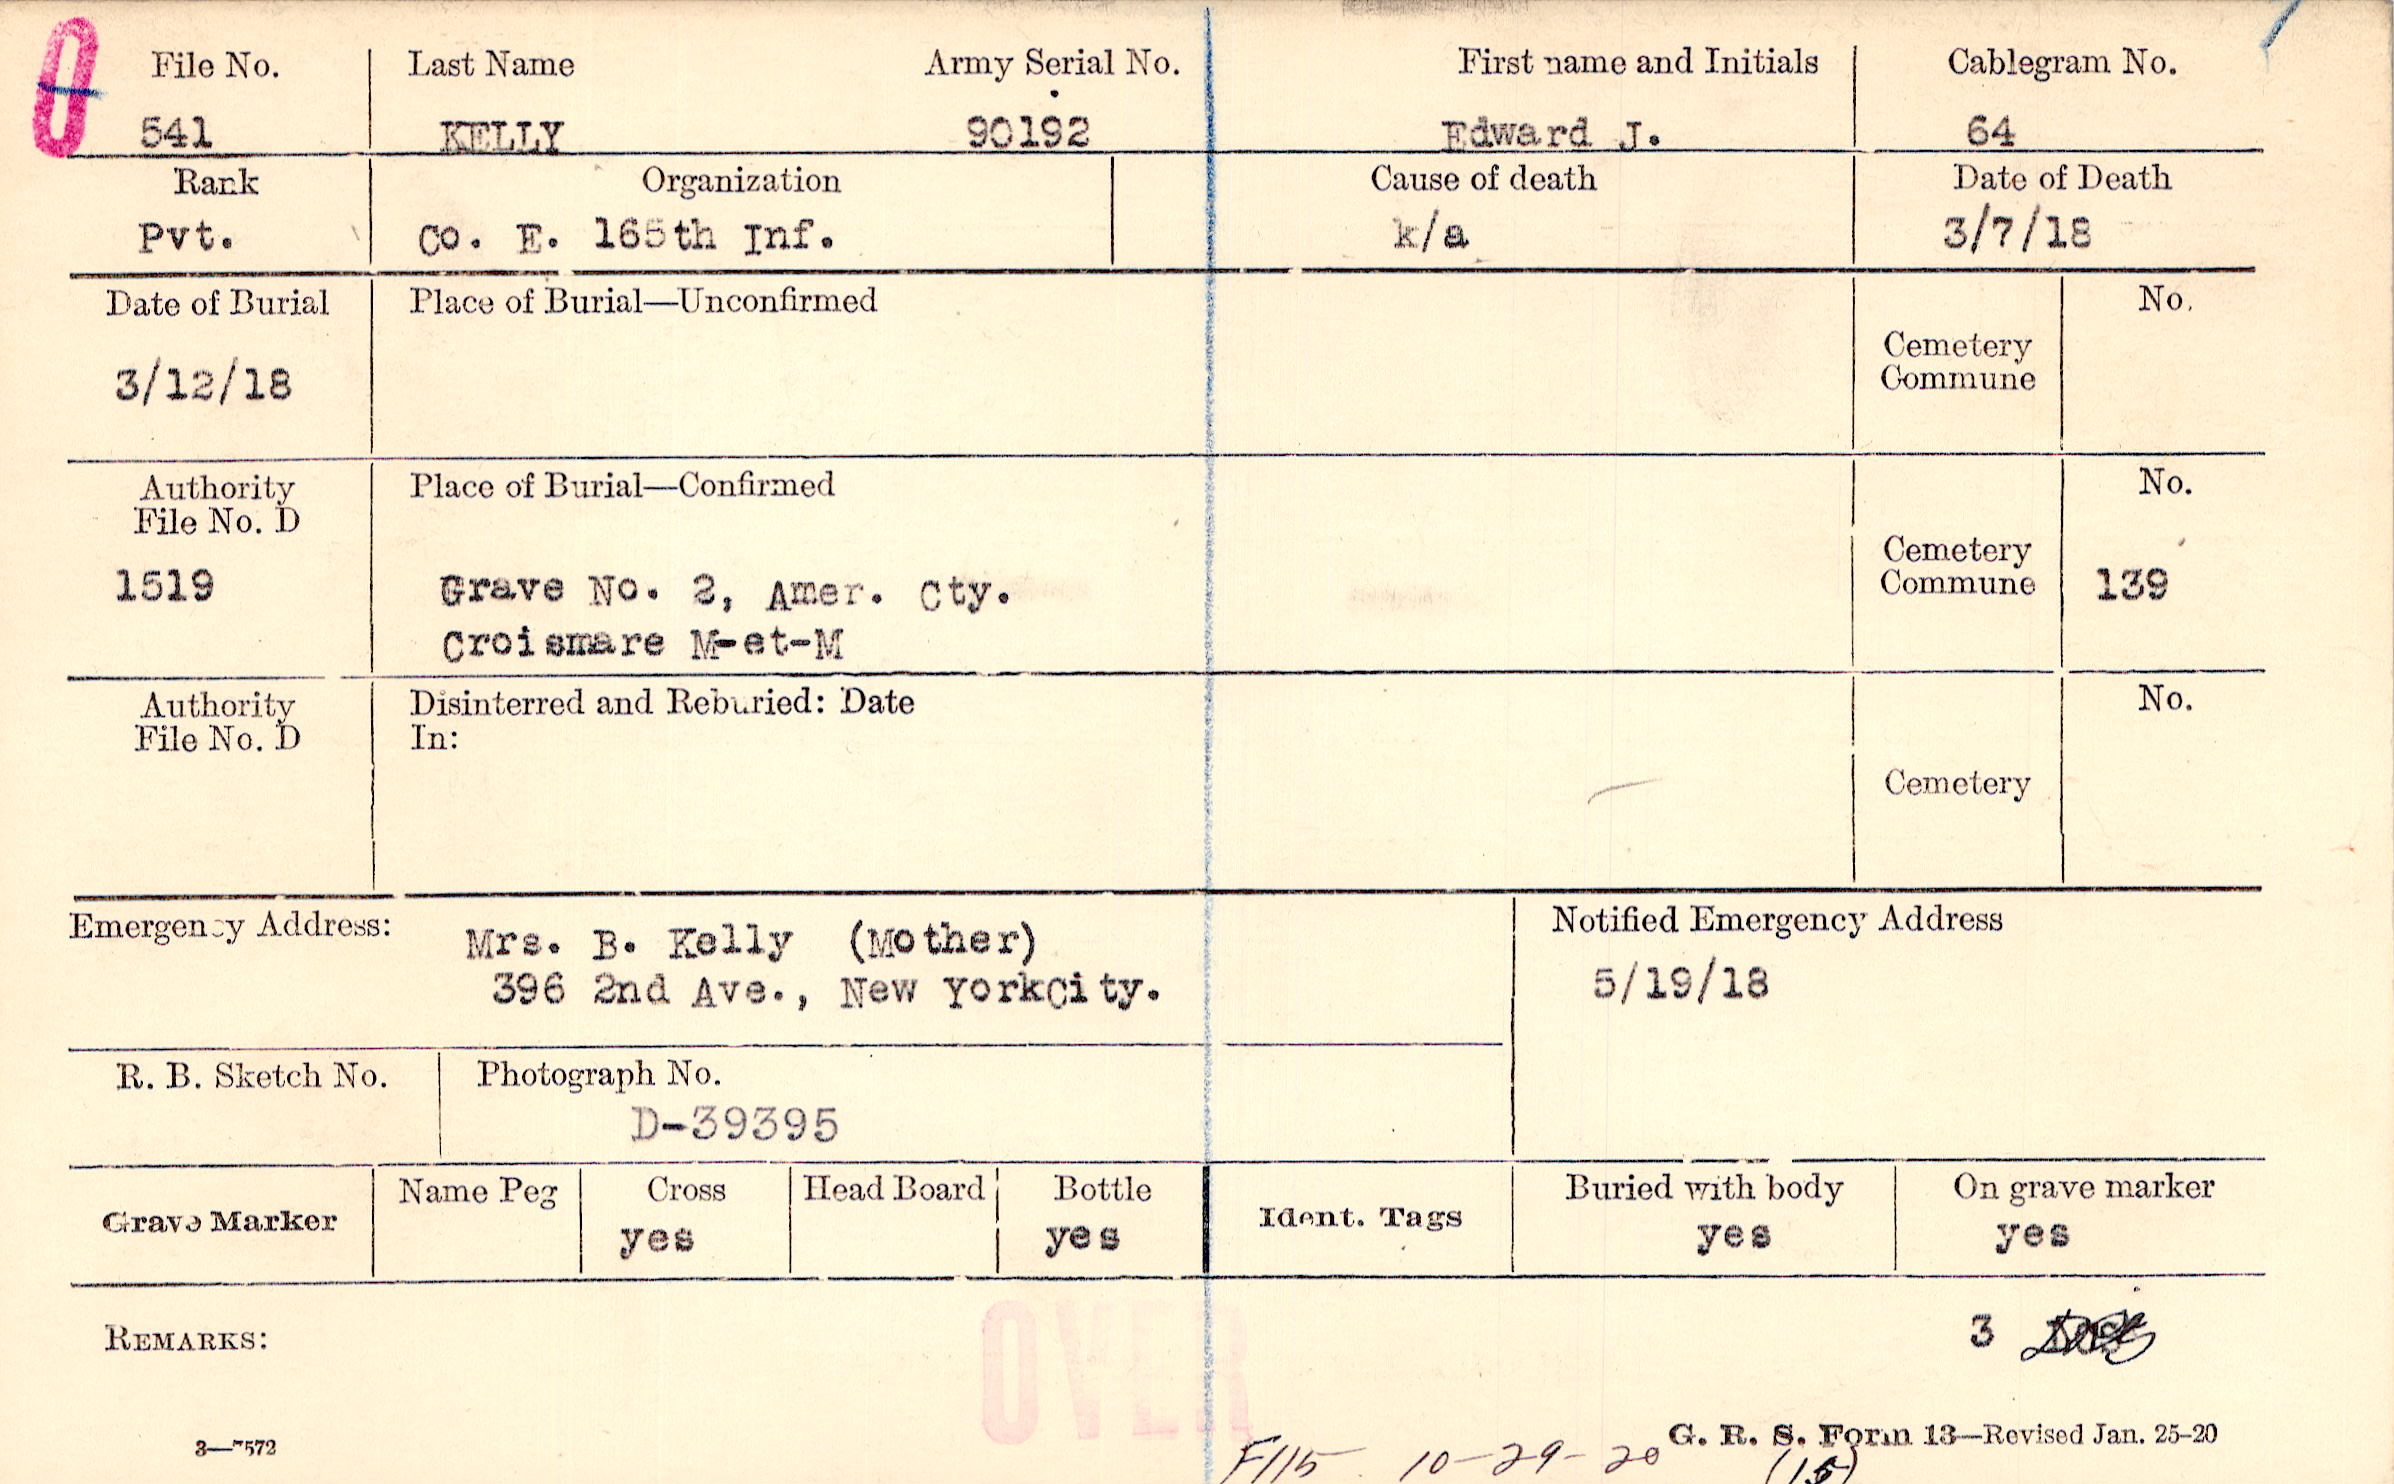 0
File No. Last Name Army Serial No. First name and Initials Cablegram No.
541 KELLY 90192 Edward J. 64
Rank Organization Cause of death Date of Death
Pvt. Co. E. 165th Inf. k/a 3/7/18
Date of Burial Place of Burial—Unconfirmed No.
Cemetery
Commune
3/12/18
Authority Place of Burial—Confirmed No.
File No. D
Cemetery
1519 Grave No. 2, Amer. Cty. Commune 139
Croismare M-et-M
Authority Disinterred and Reburied: Date No.
File No. D In:
Cemetery
Emergency Address: Notified Emergency Address
Mrs. B. Kelly (Mother)
396 2nd Ave., New YorkCity. 5/19/18
R. B. Sketch No. Photograph No.
D-39395
Grave Marker Name Peg Cross Head Board Bottle Ident. Tags Buried with body On grave marker
yes yes yes yes
REMARKS: 3
OVER
3—7572 G. R. S. Form 13—Revised Jan. 25-20
F115 10-29-20 (15)